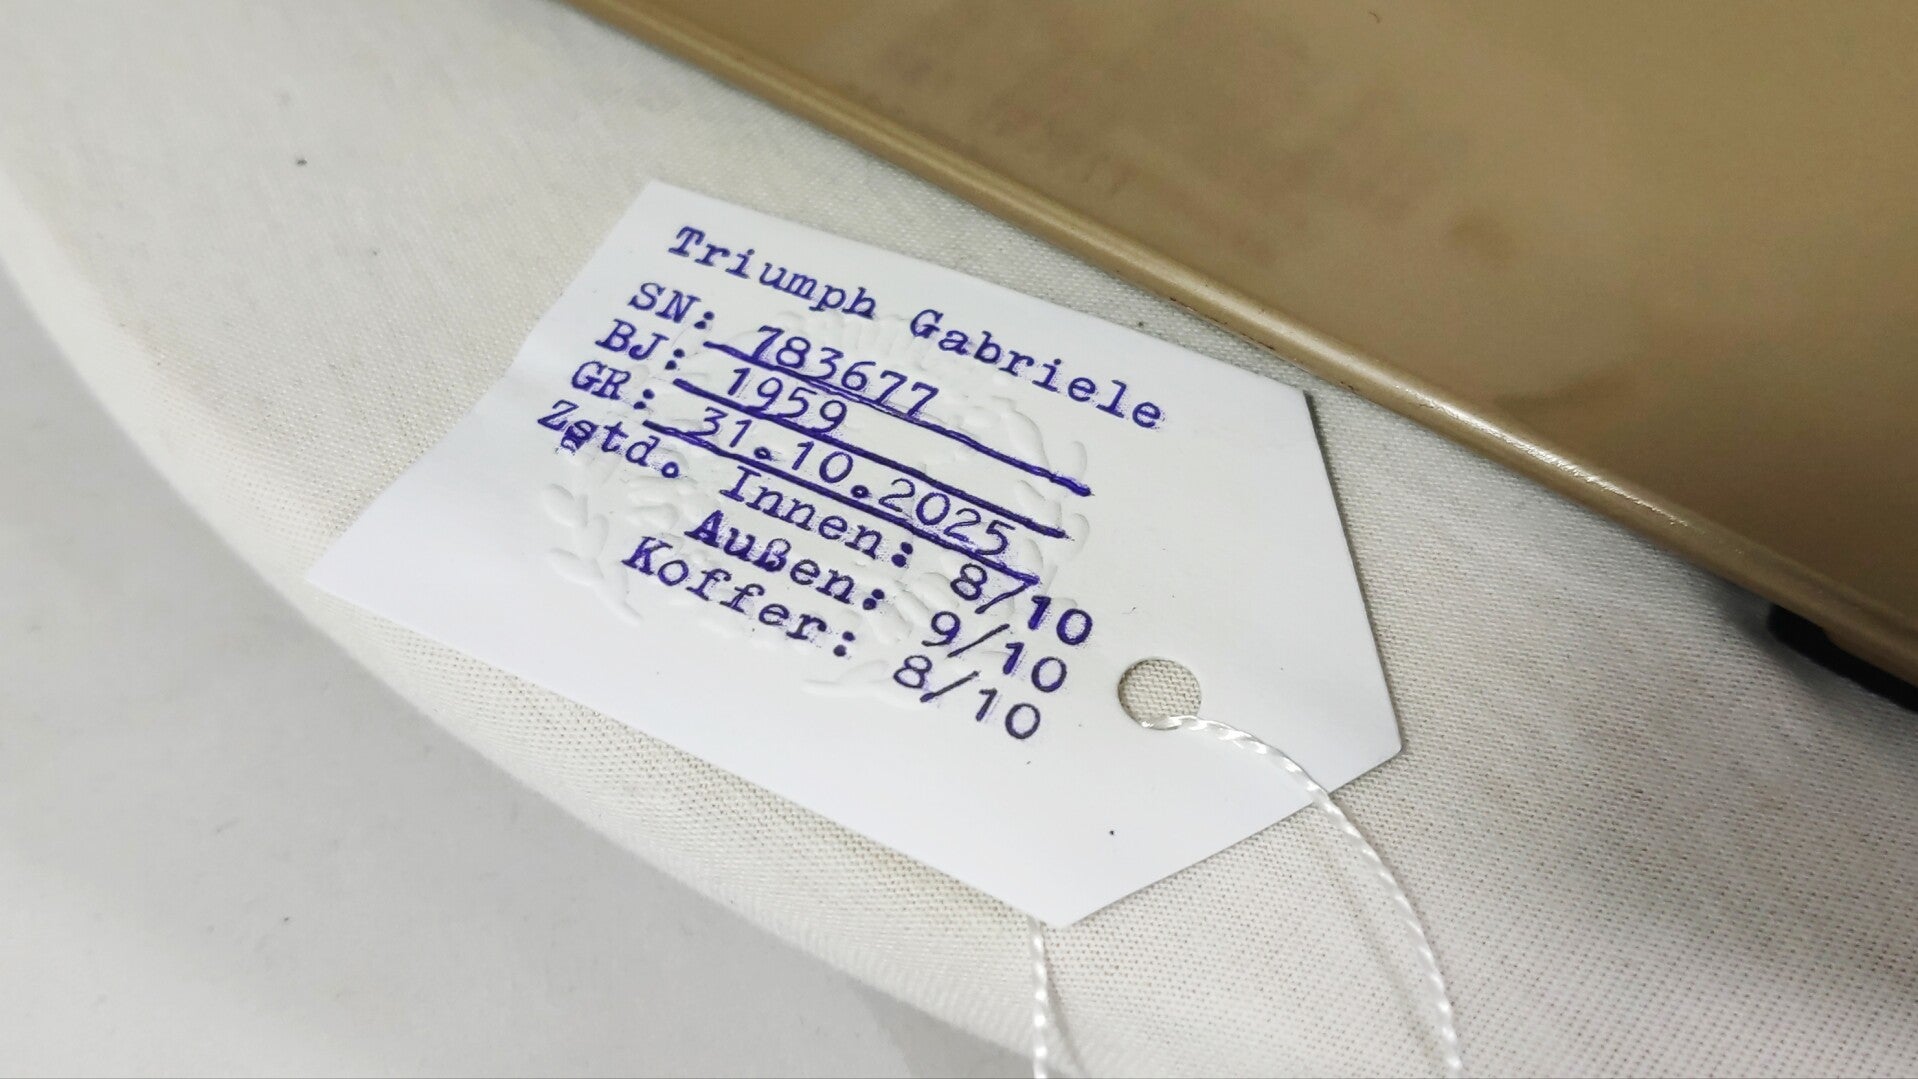 Triumph Gabriele
SN: 783677
BJ: 1959
GR: 31.10.2025
Zstd. Innen: 8/10
Außen: 9/10
Koffer: 8/10